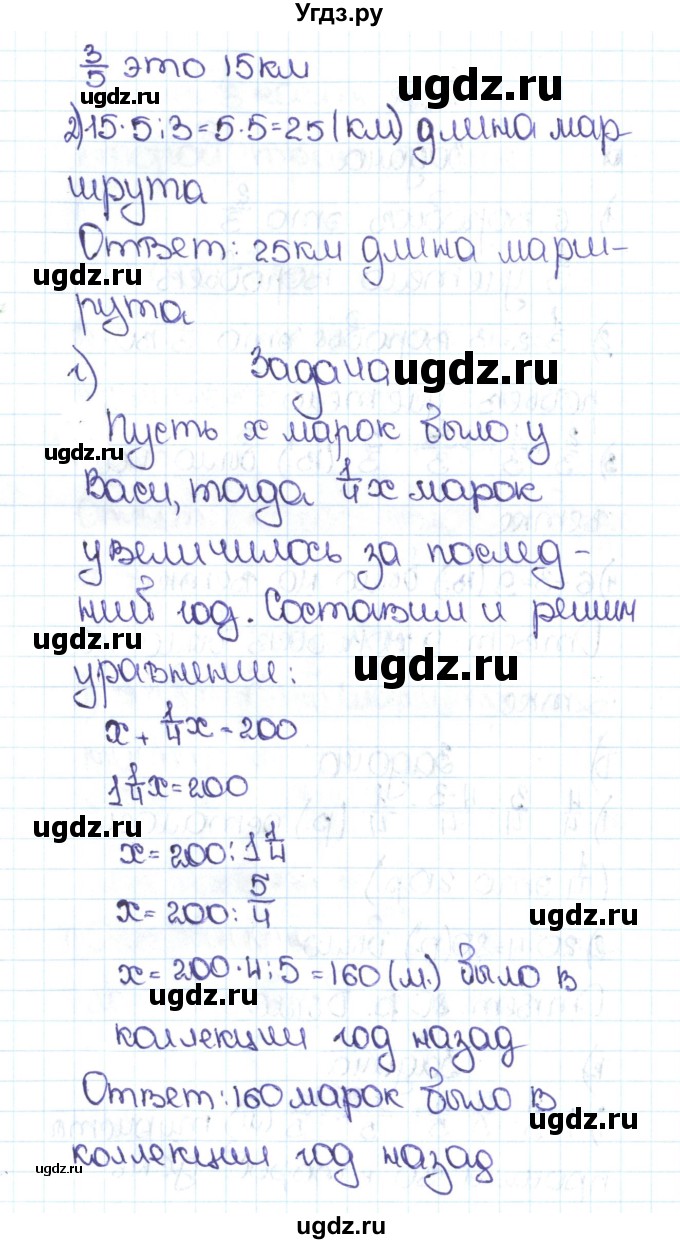 Угдз.ру
3/5 это 15км
ugdz.ru
2) 15·5:3=5·5=25 (км) длина мар
шрута
Ответ: 25км длина марш-
ugdz.ru
рута
г) Задача ugdz.ru
Пусть x марок было у
ugdz.ru
Васи, тогда 1/4x марок
увеличилось за послед-
ний год. Составим и решим
ugdz.ru
уравнение: ugdz.ru
x + 1/4x = 200
1 1/4x = 200
ugdz.ru
x = 200 : 1 1/4
x = 200 : 5/4 ugdz.ru
x = 200·4:5 = 160 (м.) было в
ugdz.ru
коллекции год назад
Ответ: 160 марок было в
коллекции год назад
ugdz.ru
ugdz.ru